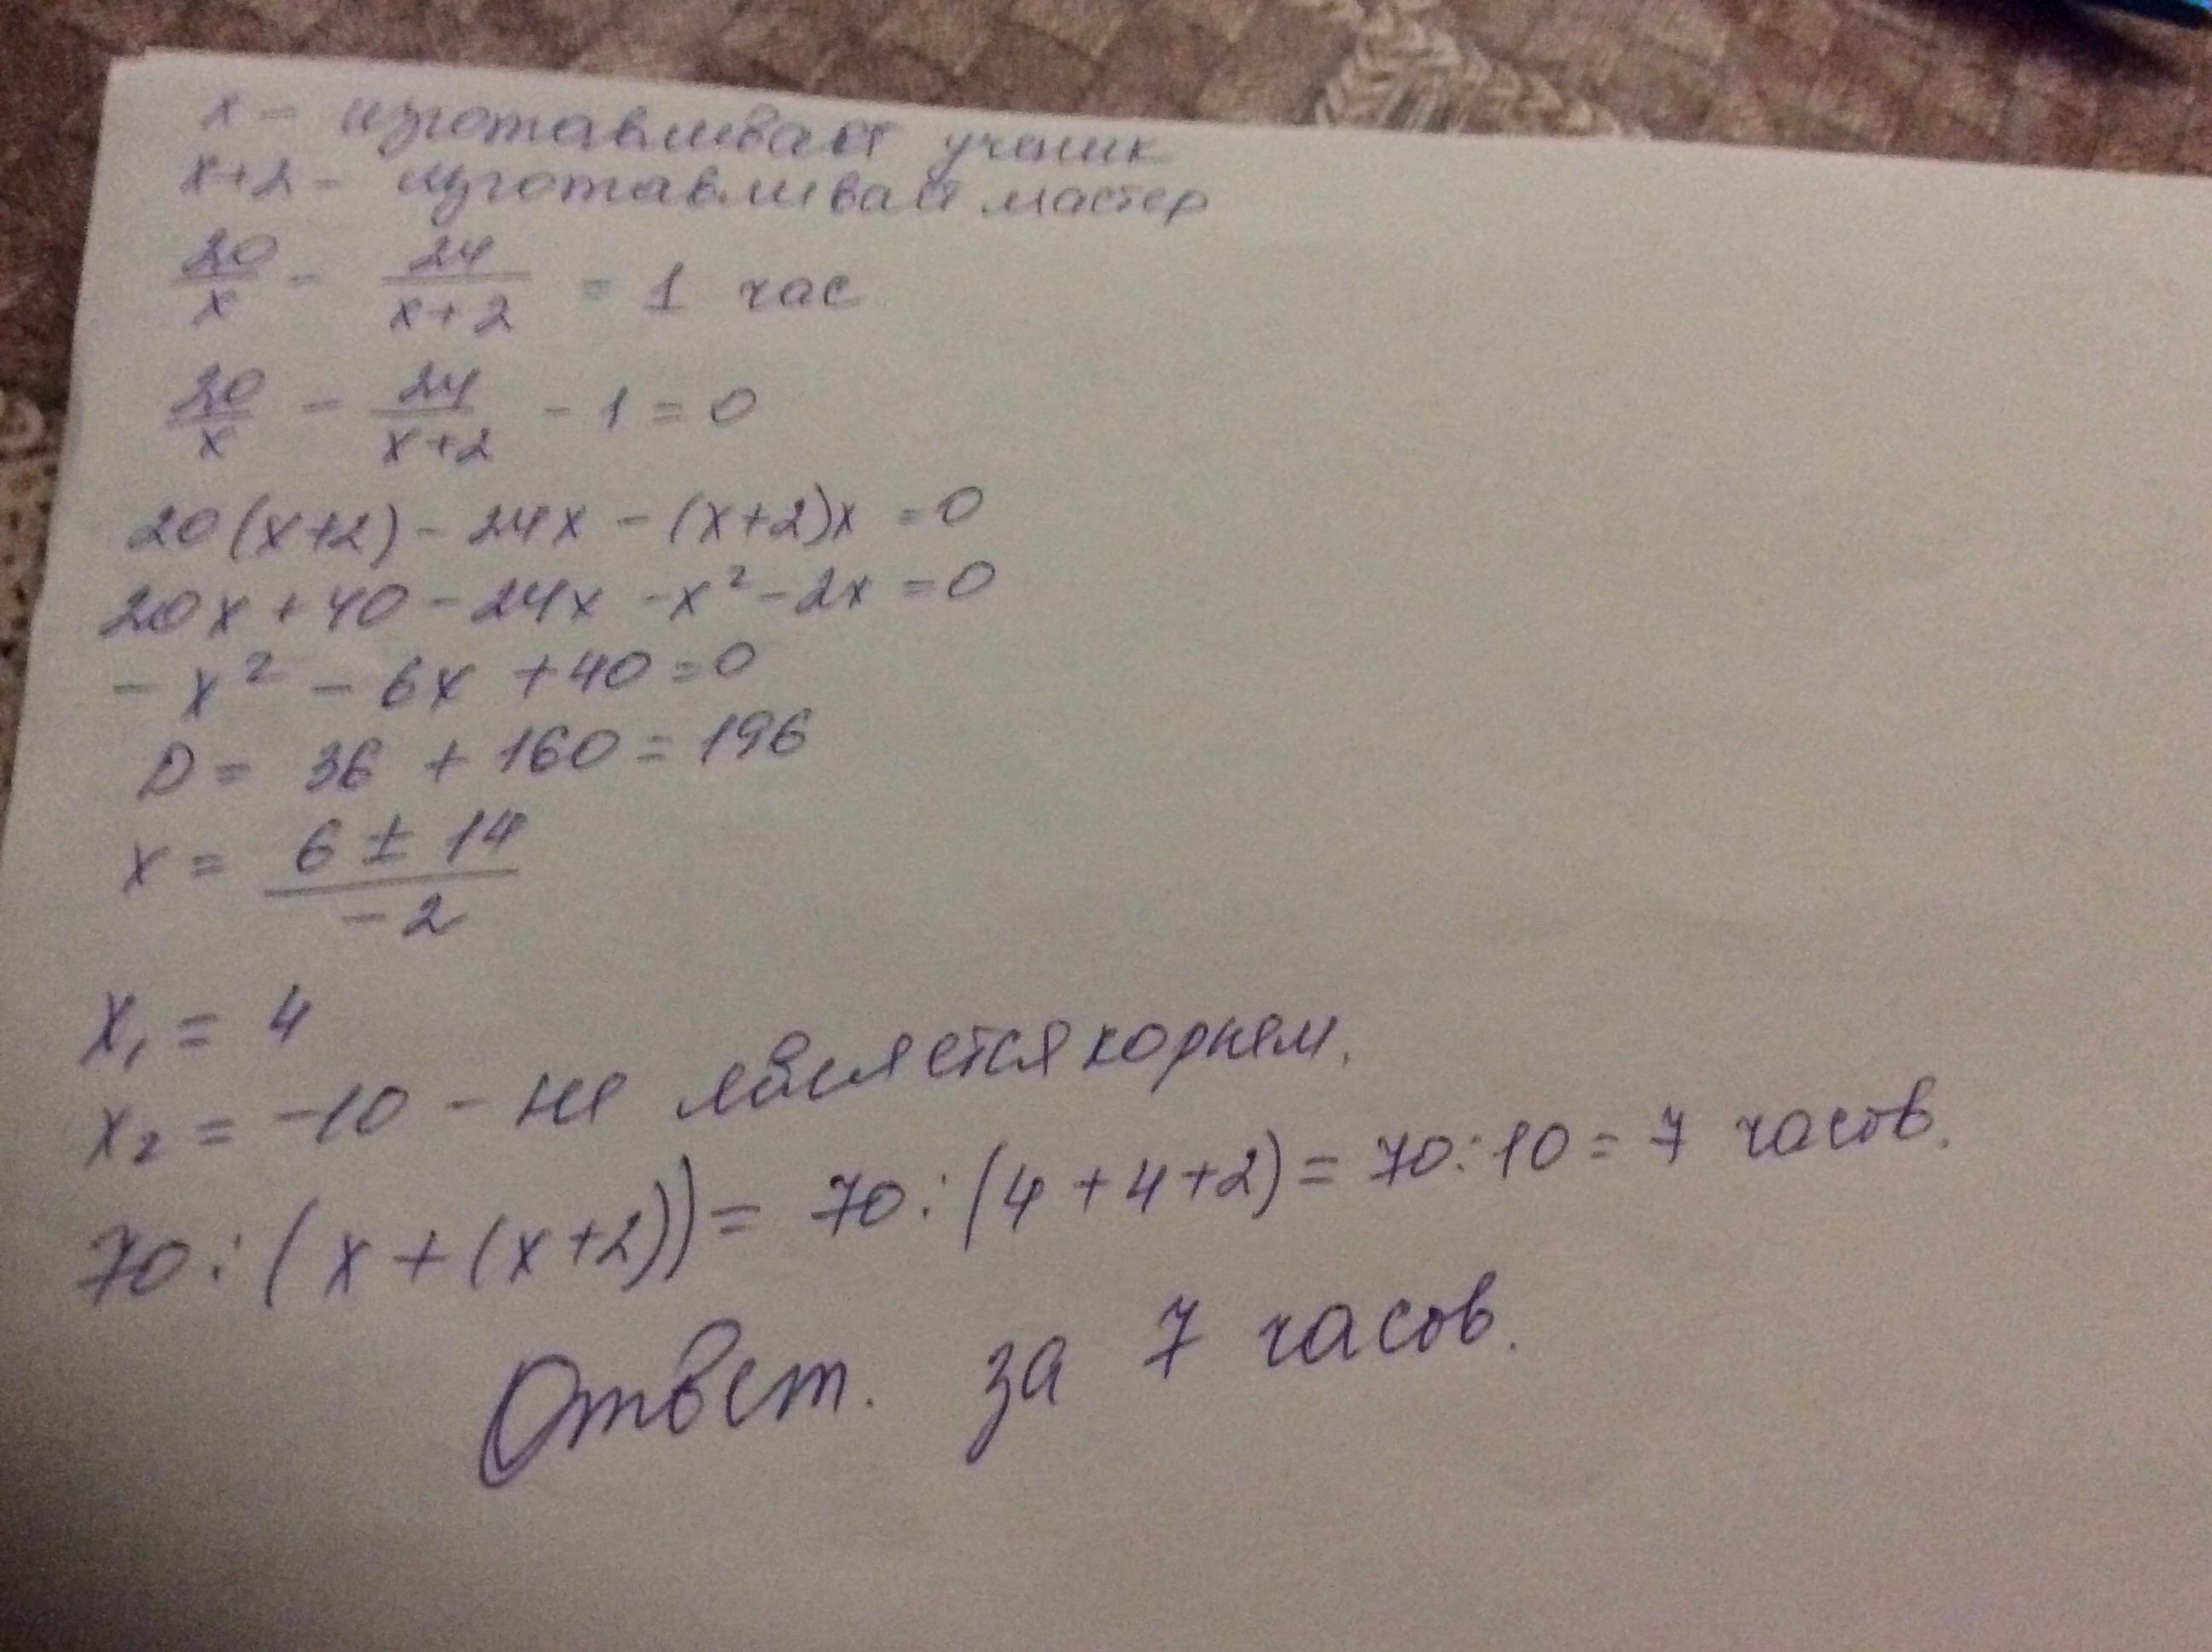 x - изготавливает ученик
x+2 - изготавливает мастер
20/x - 24/(x+2) = 1 час
20/x - 24/(x+2) - 1 = 0
20(x+2) - 24x - (x+2)x = 0
20x + 40 - 24x - x² - 2x = 0
- x² - 6x + 40 = 0
D = 36 + 160 = 196
x = (6 ± 14)/(-2)
x₁ = 4
x₂ = -10 - не является корнем.
70 : (x + (x+2)) = 70 : (4 + 4 + 2) = 70 : 10 = 7 часов.
Ответ. за 7 часов.